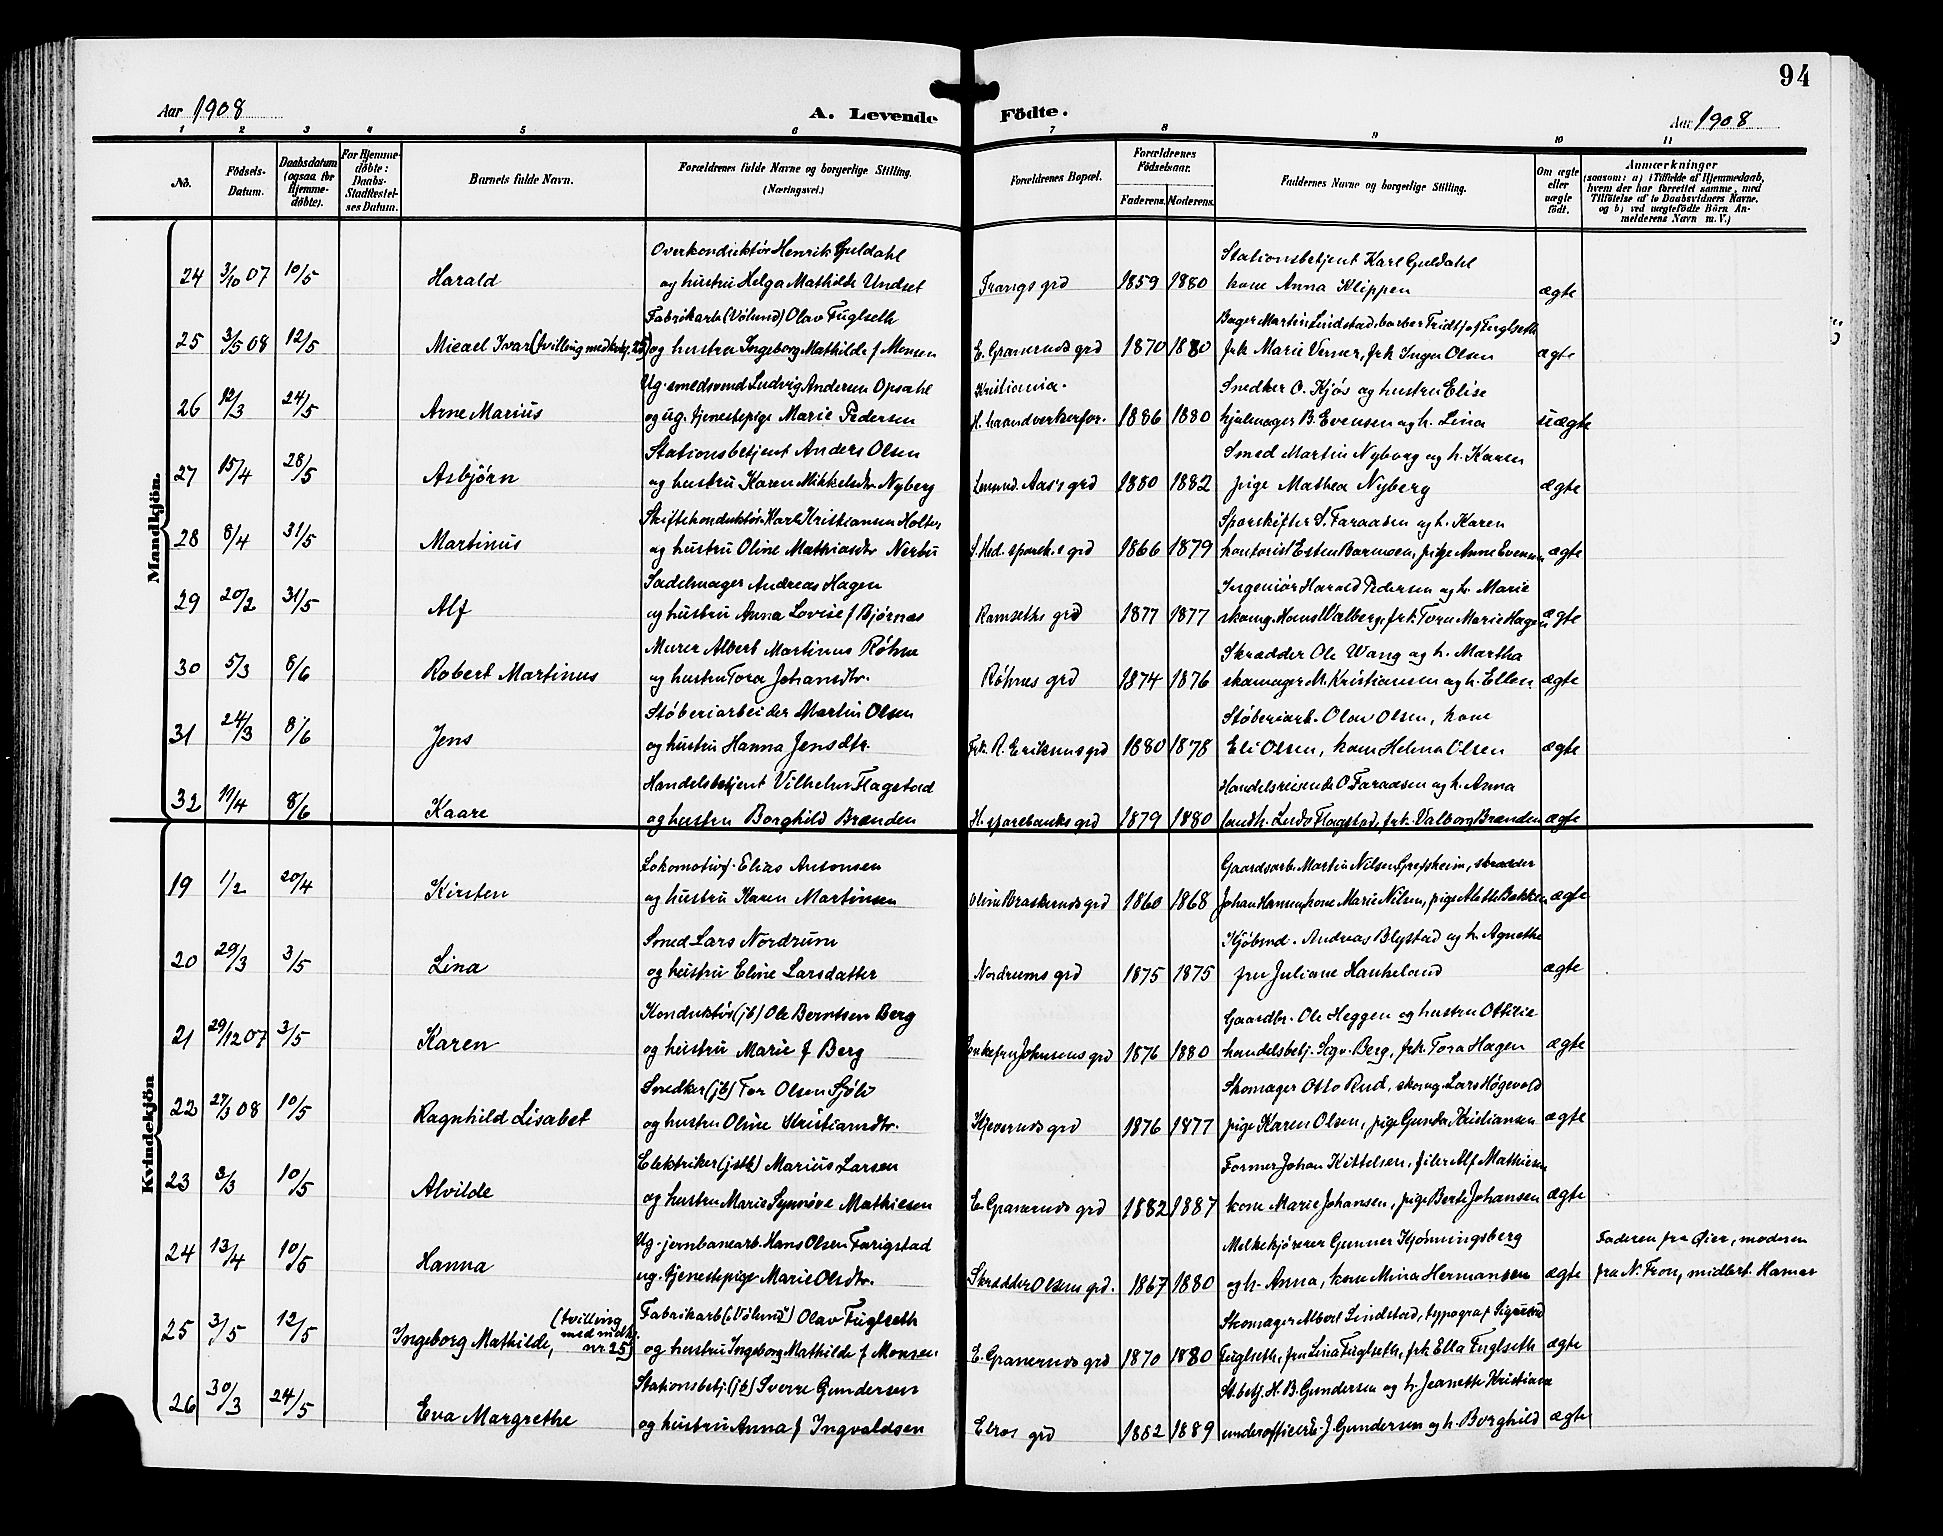 94
Aar 1908 A. Levende Födte. Aar 1908
1 2 3 4 5 6 7 8 9 10 11
No. Födsels-Datum. Daabsdatum (ogsaa for Hjemme-döbte). For Hjemme-döbte: Daabs-Stadfæstel-ses Datum. Barnets fulde Navn. Forældrenes fulde Navne og borgerlige Stilling. (Næringsvei.) Forældrenes Bopæl. Forældrenes Födselsaar. Faderens. Moderens. Faddernes Navne og borgerlige Stilling. Om ægte eller uægte födt. Anmærkninger (saasom: a) i Tilfælde af Hjemmedaab, hvem der har forrettet samme, med Tilföielse af to Daabsvidners Navne, og b) ved uægtefödte Börn An-melderens Navn m. V.)
Mandkjön.
Overkonduktør Henrik Guldahl Stationsbetjent Karl Guldahl
24 3/10 07 10/5 Harald og hustru Helga Mathilde Undset Frangs grd 1859 1880 kone Anna Klippen ægte
Fabrikarb. (Vølund) Olav Fuglseth Bager Martin Lindstad, barber Fridtjof Fuglseth
25 3/5 08 12/5 Micael Ivar (tvilling med kvkj. 25) og hustru Ingeborg Mathilde f Monsen E. Graneruds grd 1870 1880 frk Marie Verner, frk Inger Olsen ægte
Ug. smedsvend Ludvig Andersen Opsahl Kristiania. Snedker O. Kjøs og hustru Elise
26 12/3 24/5 Arne Marius og ug. tjenestepige Marie Pedersen H. haandverkerfor. 1886 1880 hjulmager B. Evensen og h. Lina uægte
Stationsbetjent Anders Olsen Smed Martin Nyborg og h. Karen
27 15/4 28/5 Asbjörn og hustru Karen Mikkelsdtr Nyberg Aas's grd 1880 1882 pige Mathea Nyberg ægte
Skiftekonduktør Karl Kristiansen Holter Sporskifter S. Faraasen og h. Karen
28 8/4 31/5 Martinus og hustru Oline Mathiasdtr S. Hed. spareb.s grd 1866 1879 kontorist Esten pige Anne Evensen ægte
Sadelmager Andreas Hagen Ingeniør Harald Pedersen og h. Marie
29 20/2 31/5 Alf og hustru Anna Lovise f Bjørnaas Ramseths grd 1877 1877 skomg. Hans Walberg, frk. Tora Marie Hagen ægte
Murer Albert Martinus Røhne Skrædder Ole Wang og h. Martha
30 5/3 8/6 Robert Martinus og hustru Tora Johansdtr. Røhnes grd 1874 1876 skomager M. Kristiansen og h. Ellen ægte
Støberiarbeider Martin Olsen Støberiarb. Olav Olsen, kone
31 24/3 8/6 Jens og hustru Hanna Jensdtr. Frk. R. Eriksens grd 1880 1878 Eli Olsen, kone Helma Olsen ægte
Handelsbetjent Vilhelm Flagstad Handelsreisende O. Faraasen og h. Anna
32 11/4 8/6 Kaare og hustru Borghild Brænden H. sparebanks grd 1879 1880 landh. Flagstad, frk. Valborg Brænden ægte
Kvindekjön
Lokomotivf. Elias Antonsen Gaardsarb. Martin Nilsen Gredsheim, skrædder
19 1/2 20/4 Kirsten og hustru Karen Martinsen grd 1860 1868 Johan Hansen, kone Marie Nilsen, pige Alette Bakken ægte
Smed Lars Nordrum Kjøbmd. Andreas Blystad og h. Agnethe
20 29/3 3/5 Lina og hustru Eline Larsdatter Nordrums grd 1875 1875 fru Juliane Haukeland ægte
Konduktør (jb) Ole Berntsen Berg Gaardbr. Ole Heggen og hustru Ottilie
21 29/12 07 3/5 Karen og hustru Marie f Berg Enkefru Johnsens grd 1876 1880 handelsbetj. Sigv. Berg, frk. Tora Hagen ægte
Snedker (jb) Tor Olsen Sjøli Skomager Otto Rud, skomg. Lars Høgevold
22 27/3 08 10/5 Ragnhild Lisabet og hustru Oline Kristiansdtr. Kjeveruds grd 1876 1877 pige Karen Olsen, pige Gunda Kristiansen ægte
Elektriker (jstb) Marius Larsen Former Johan Kittelsen, filer Alf Mathiesen
23 3/3 10/5 Alvilde og hustru Marie Synnöve Mathiesen E. Graneruds grd 1882 1887 kone Marie Johansen, pige Berte Johansen ægte
Ug. jernbanearb. Hans Olsen Farigstad Melkekjører Gunner Kjønningsberg Faderen fra Øier, moderen
24 13/4 10/5 Hanna ug. tjenestepige Marie Olsdtr. Skrædder Olsens grd. 1867 1880 og h. Anna, kone Mina Hermansen ægte fra N. Fron, midlert. Hamar
Fabrikarb. ("Vølund") Olav Fuglseth Skomager Albert Lindstad, typograf Sigmund
25 3/5 12/5 Ingeborg Mathilde, (tvilling med mdkj. nr. 25) og hustru Ingeborg Mathilde f Monsen E. Granerunds grd 1870 1880 Fuglseth, fru Lina Fuglseth, frk Ella Fuglseth ægte
Stationsbetj. (jb) Sverre Gundersen St. betj. H. B. Gundersen og h. Jeanette Kristiane
26 30/3 24/5 Eva Margrethe og hustru Anna f Ingvaldsen grd 1882 1889 underofficer J. Gundersen og h. Borghild ægte